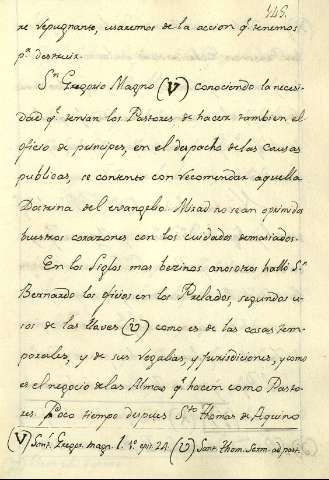 148.
re repugnante, usaremos de la accion q.e tenemos
p.a destruir.
S.n Gregorio Magno (V) conociendo la necesi-
dad q.e tenian los Pastores de hacer tambien el
oficio de principes, en el despacho de las causas
publicas, se contento con recomendar aquella
Doctrina del evangelio Mirad no sean oprimidos
buestros corazones con los cuidados demasiados.
En los Siglos mas becinos anosotros halló S.n
Bernardo los oficios en los Prelados, segundos u-
sos de las llaves (V) como es de las casas tem-
porales, y de sus Regalias y Jurisdiciones, y como
es el negocio de las Almas q.e hacen como Pasto-
res. Poco tiempo despues S.to Thomas de Aquino
(V) Sant. Gregor. magn. l. 1.º epit. 24. (V) Sant. Thom. Serm. ad past.